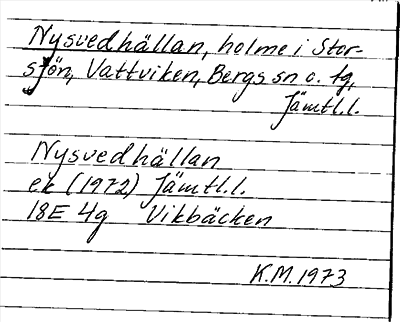 Nysvedhällan, holme i Stor-
sjön, Vattviken, Bergs sn o. tg,
Jämtl.l.
Nysvedhällan
ek (1972) Jämtl.l.
18E 4g Vikbäcken
K.M. 1973